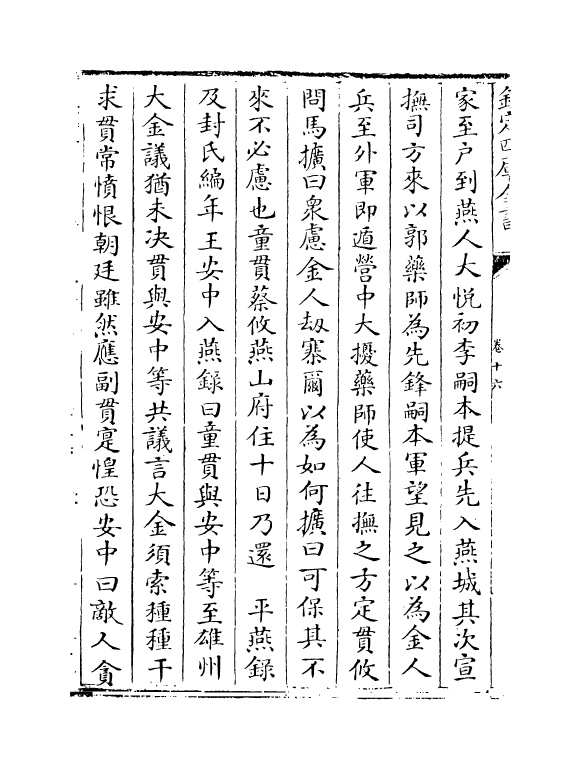 欽定四庫全書
卷十六
家至户到燕人大悦初李嗣本提兵先入燕城其次宣
撫司方來以郭藥師為先鋒嗣本軍望見之以為金人
兵至外軍即遁營中大擾藥師使人往撫之方定貫攸
問馬擴曰衆慮金人刼寨爾以為如何擴曰可保其不
來不必慮也童貫蔡攸燕山府住十日乃還　平燕録
及封氏編年王安中入燕録曰童貫與安中等至雄州
大金議猶未决貫與安中等共議言大金須索種種干
求貫常憤恨朝廷雖然應副貫寔惶恐安中曰敵人貪